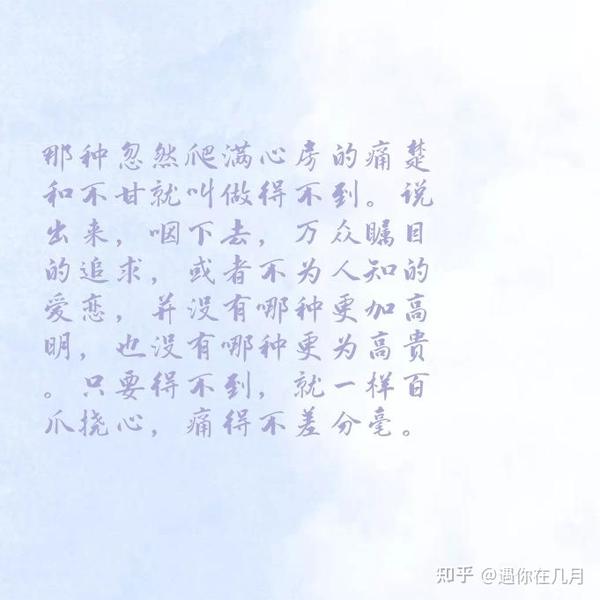 那种忽然爬满心房的痛楚
和不甘就叫做得不到。说
出来，咽下去，万众瞩目
的追求，或者不为人知的
爱恋，并没有哪种更加高
明，也没有哪种更为高贵
。只要得不到，就一样百
爪挠心，痛得不差分毫。
知乎 @遇你在几月